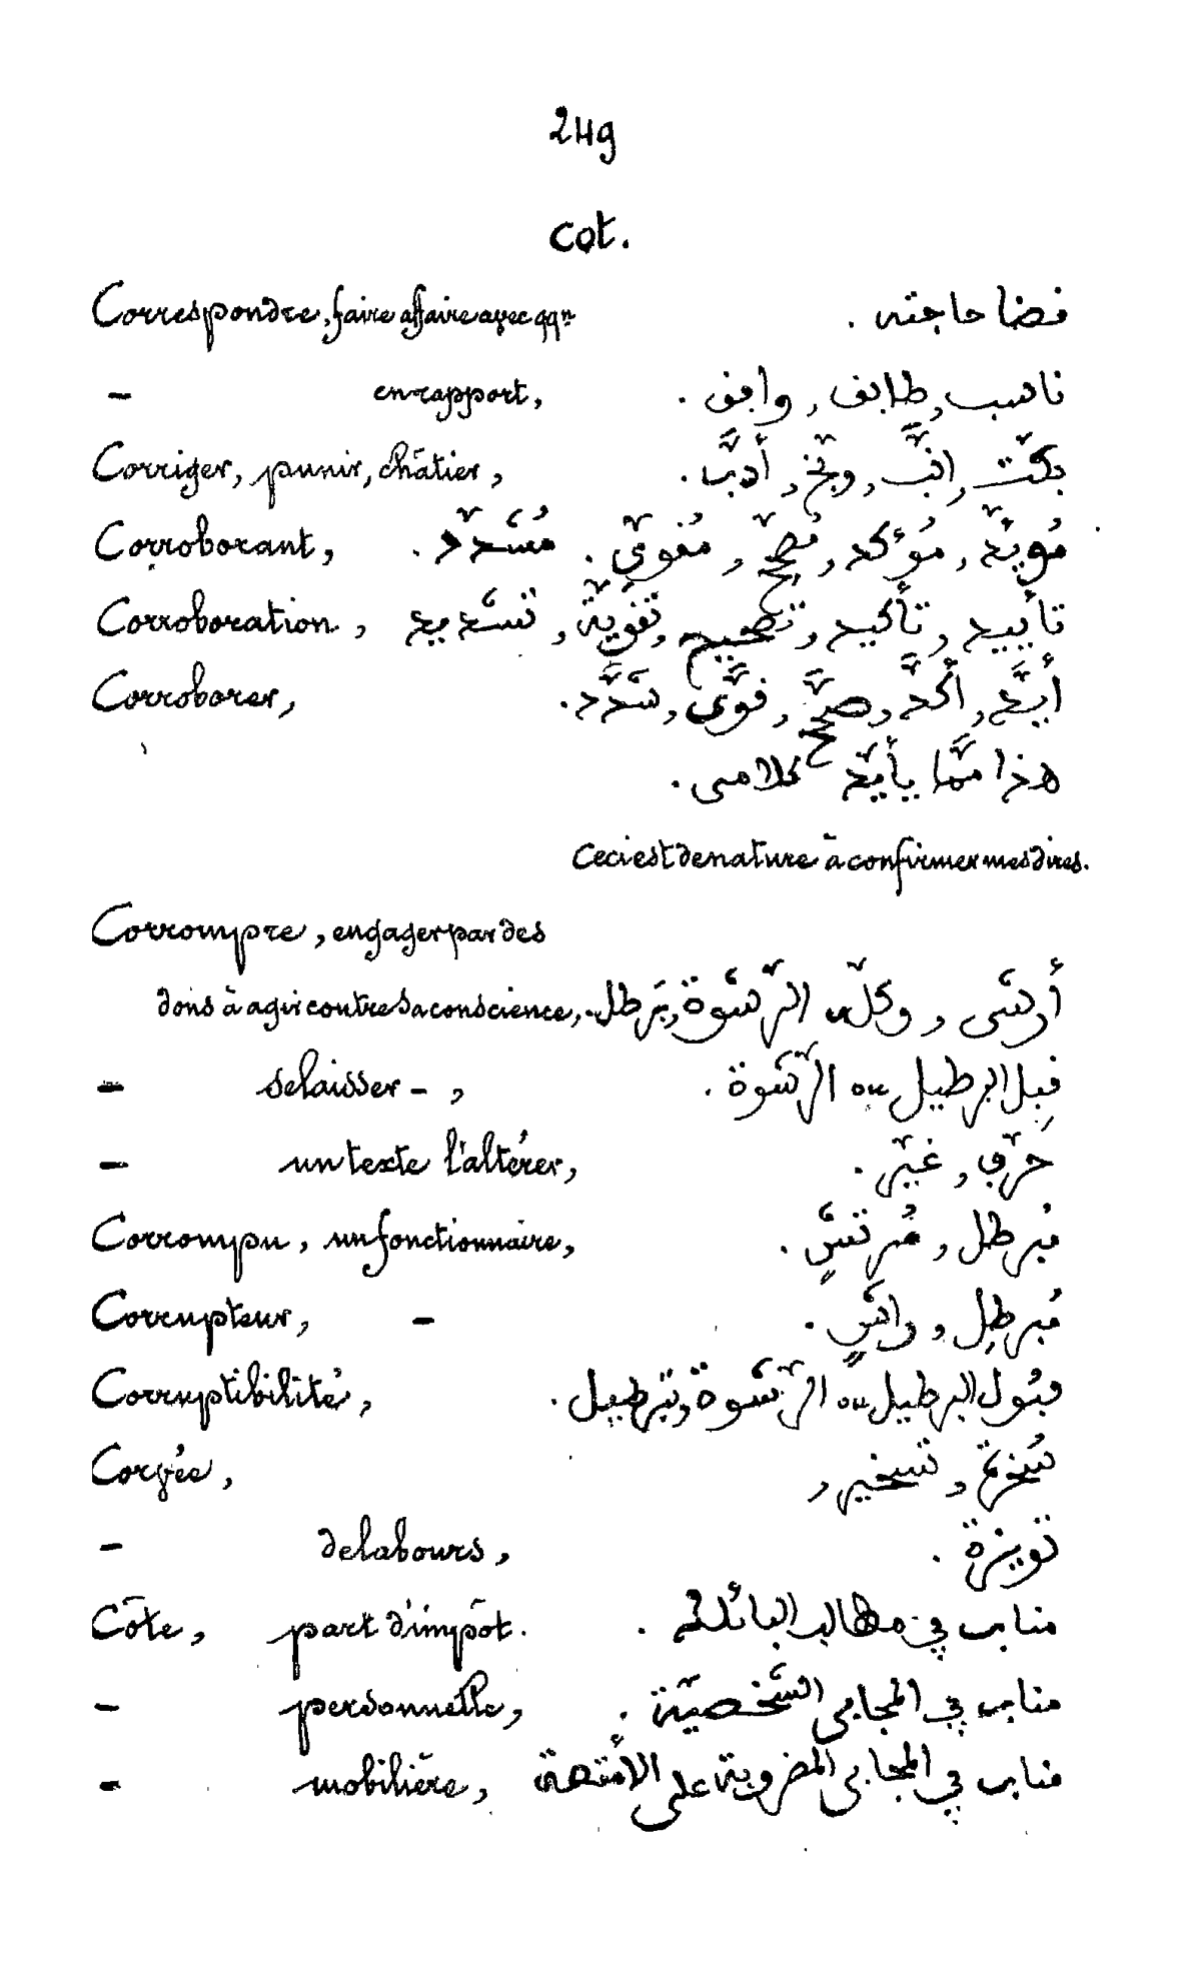 249
cot.
Correspondre, faire affaire avec qqn فضا حاجته .
- en rapport, ناسب, طابف, وافق .
Corriger, punir, châtier, بكّت, انّب, وبّخ, أدّب .
Corroborant, مُويّد, مُؤكد, مُصحّ, مُفوّي . مُشدّد .
Corroboration, تأييد, تأكيد, تصحيح, تفويّة, تشديد
Corroborer, أيّد, أكّد, صحّح, فوّى, شدّد .
هذا ممّا يأيّد كلامي .
Ceci est de nature à confirmer mes dires.
Corrompre, engager par des
dons à agir contre sa conscience, أرشى, وكّل ال الرّشوة, برطل .
- se laisser -, فبِل البرطيل ou الرّشوة .
- un texte l'altérer, حرّف, غيّر .
Corrompu, un fonctionnaire, مُبرطل, مُرتشٍ .
Corrupteur, - مُبرطِل, راشٍ .
Corruptibilité, فبُول البرطيل ou الرّشوة, تبرطيل .
Corvée, سُخرة, تسخير,
- de labours, تويزة .
Côte, part d'impôt. مناب في مطالب البائلك .
- personnelle, مناب في المجابي الشّخصيّة .
- mobilière, مناب في المجابي المضروبة على الأمتعة